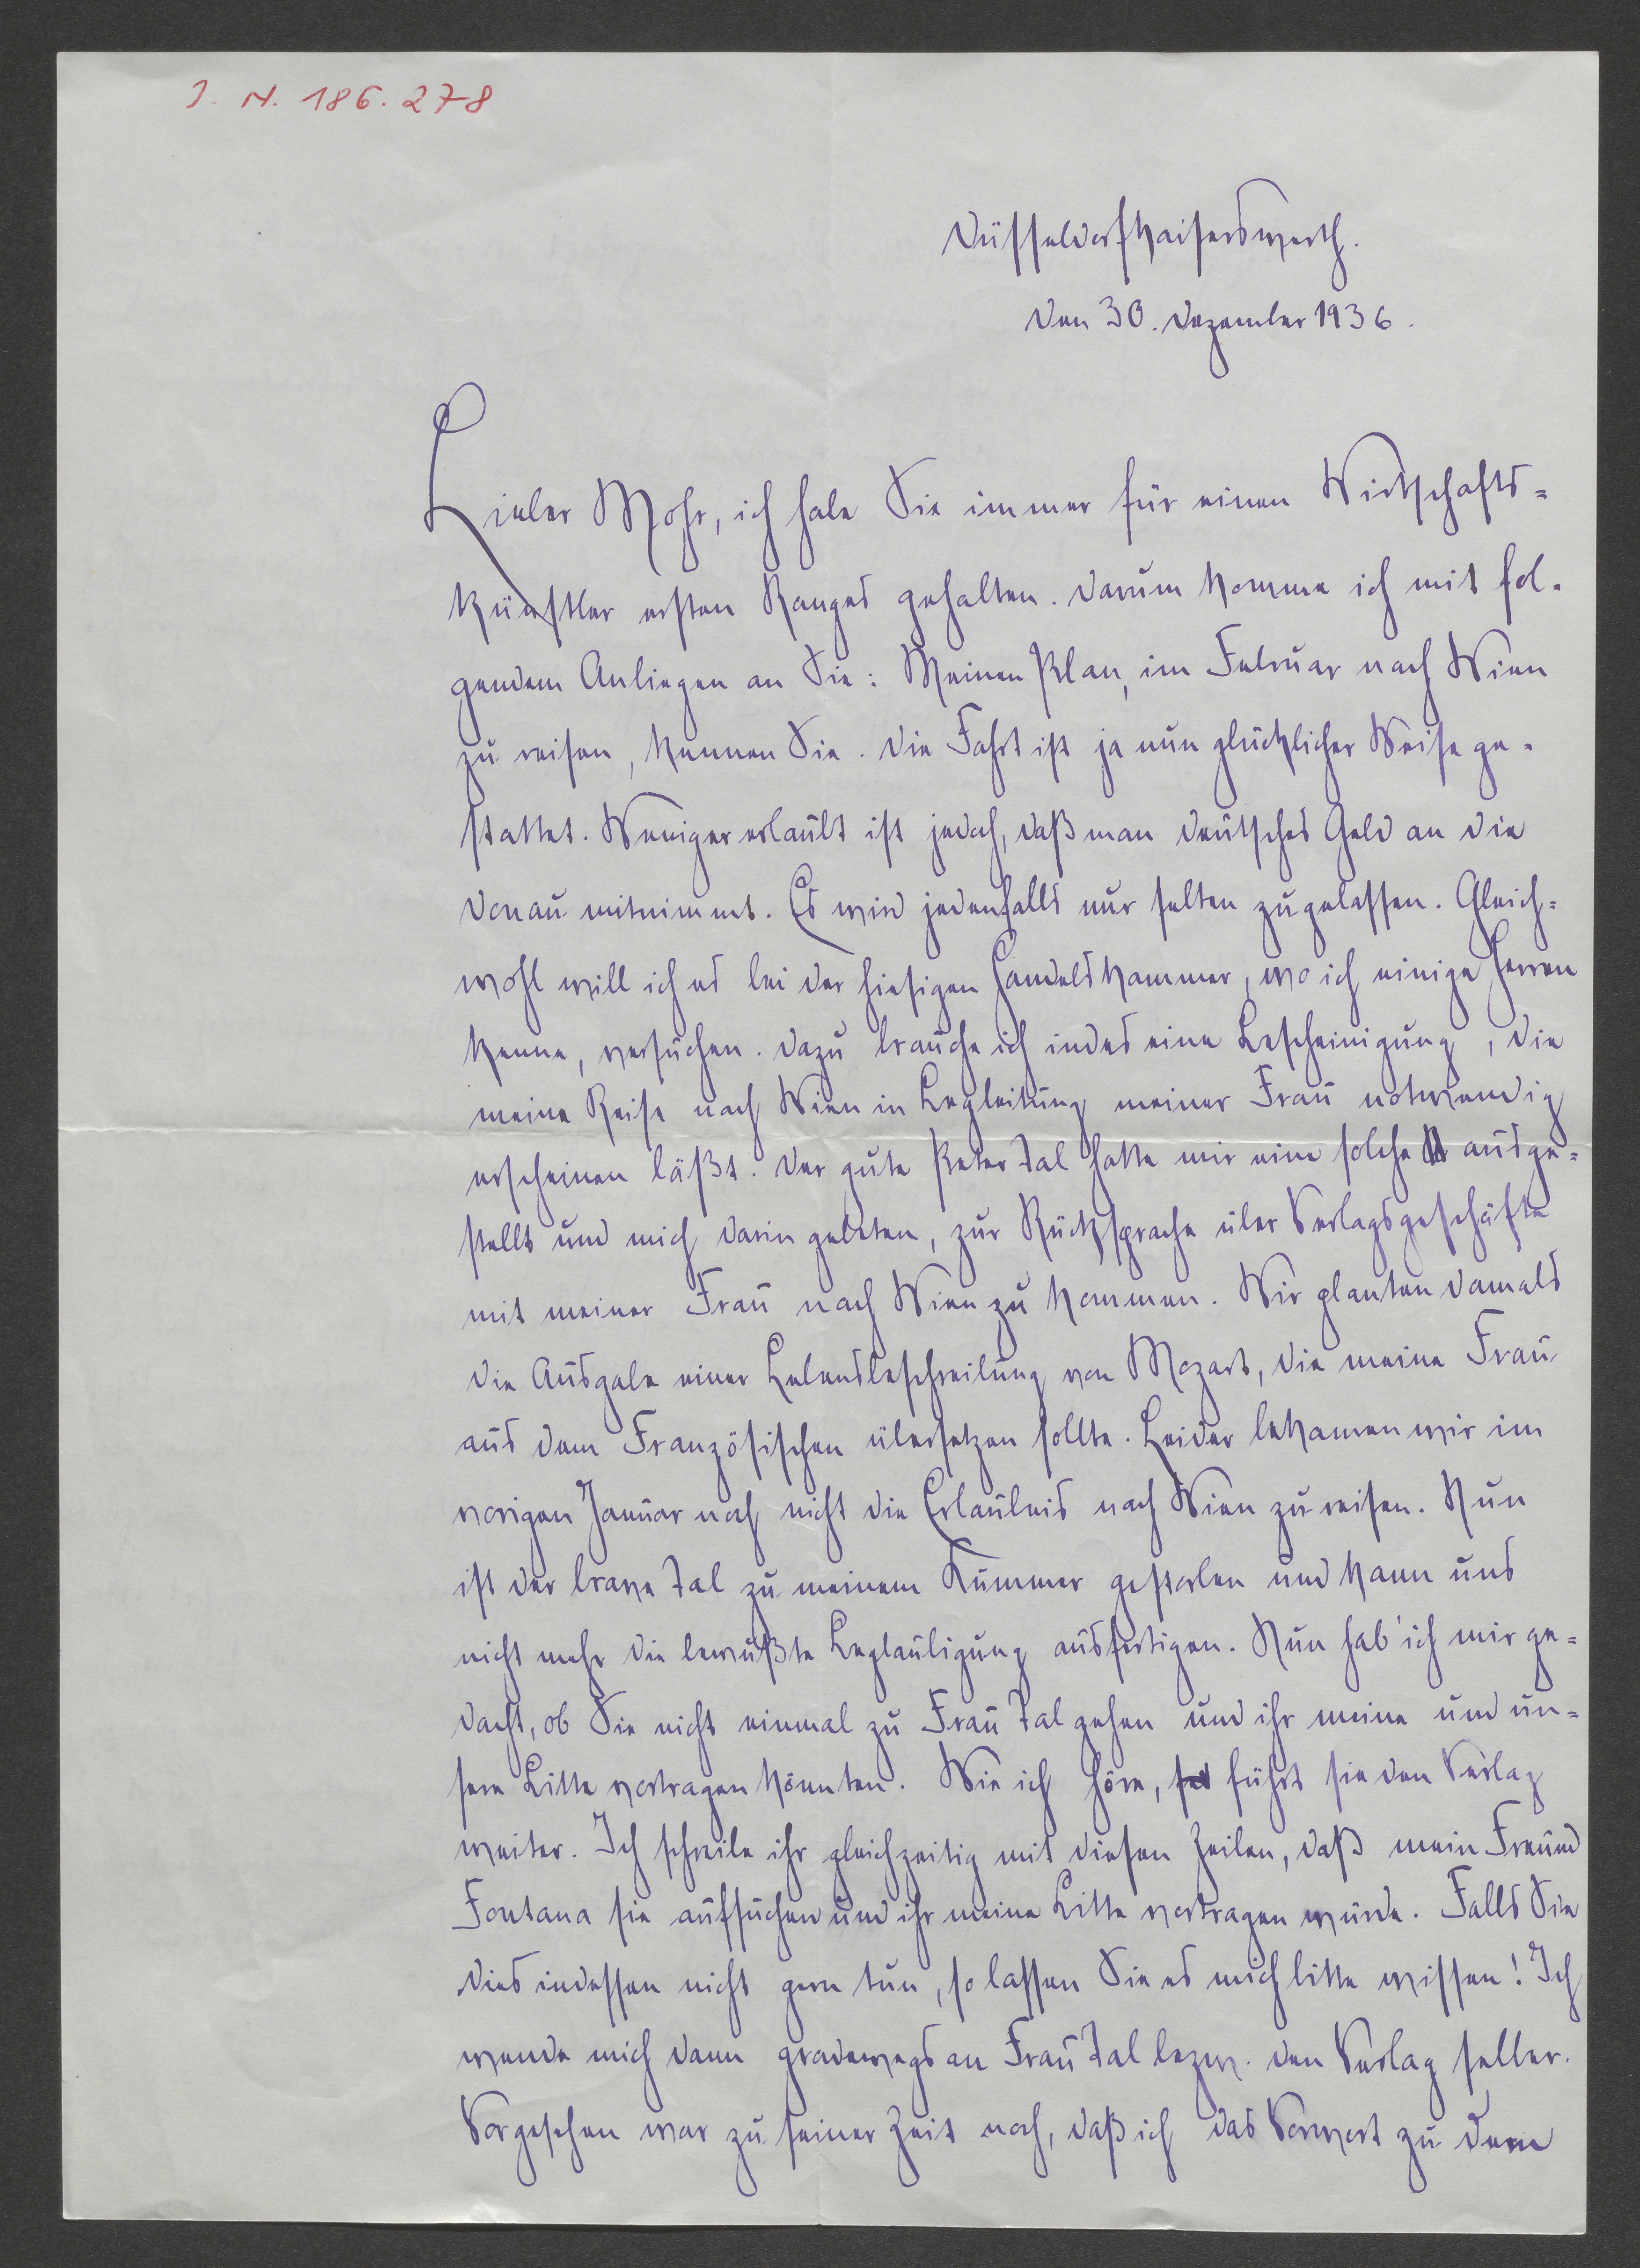 J. N. 186.278
Düsseldorf Kaiserswerth.
Den 30. Dezember 1936.
Lieber Mohr, ich habe Sie immer für einen Wirtschafts-
künstler ersten Ranges gehalten. Darum komme ich mit fol-
gendem Anliegen an Sie: Meinen Plan, im Februar nach Wien
zu reisen, kennen Sie. Die Fahrt ist ja nun glücklicher Weise ge-
stattet. Weniger erlaubt ist jedoch, daß man deutsches Geld an die
Donau mitnimmt. Es wird jedenfalls nur selten zugelassen. Gleich-
wohl will ich es bei der hiesigen Handelskammer, wo ich einige Herren
kenne, versuchen. Dazu brauche ich indes eine Bescheinigung, die
meine Reise nach Wien in Begleitung meiner Frau notwendig
erscheinen läßt. Der gute Peter Tal hatte mir eine solche ausge-
stellt und mich darin gebeten, zur Rücksprache über Verlagsgeschäfte
mit meiner Frau nach Wien zu kommen. Wir planten damals
die Ausgabe einer Lebensbeschreibung von Mozart, die meine Frau
aus dem Französischen übersetzen sollte. Leider bekamen wir im
vorigen Januar noch nicht die Erlaubnis nach Wien zu reisen. Nun
ist der brave Tal zu meinem Kummer gestorben und kann uns
nicht mehr die bewußte Beglaubigung ausfertigen. Nun hab' ich mir ge-
dacht, ob Sie nicht einmal zu Frau Tal gehen und ihr meine und un-
sere Bitte vortragen könnten. Wie ich höre, führt sie den Verlag
weiter. Ich schreibe ihr gleichzeitig mit diesen Zeilen, daß mein Freund
Fontana sie aufsuchen und ihr meine Bitte vortragen würde. Falls Sie
dies indessen nicht gern tun, so lassen Sie es mich bitte wissen! Ich
wende mich dann gradewegs an Frau Tal bezw. den Verlag selber.
Vorgesehen war zu seiner Zeit noch, daß ich das Vorwort zu dem